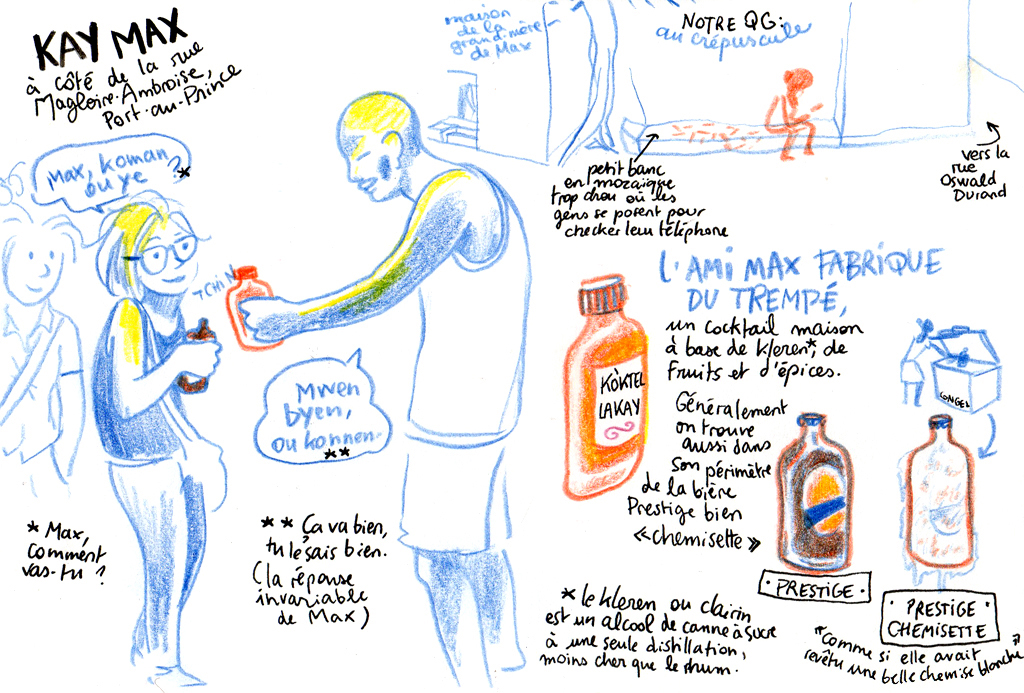 KAY MAX
à côté de la rue
Magloire-Ambroise,
Port-au-Prince
Max, koman
ou ye ?*
TCHIN
Mwen
byen,
ou konnen.
**
* Max,
comment
vas-tu ?
** Ça va bien,
tu le sais bien.
(la réponse
invariable
de Max)
maison
de la
grand-mère
de Max
NOTRE QG:
au crépuscule
petit banc
en mozaïque
trop chou où les
gens se posent pour
checker leur téléphone
vers la
rue
Oswald
Durand
L'AMI MAX FABRIQUE
DU TREMPÉ,
un cocktail maison
à base de kleren*, de
fruits et d'épices.
KÒKTEL
LAKAY
Généralement
on trouve
aussi dans
son périmètre
de la bière
Prestige bien
«chemisette»
CONGEL
• PRESTIGE •
• PRESTIGE •
CHEMISETTE
"comme si elle avait
revêtu une belle chemise blanche"
* le kleren ou clairin
est un alcool de canne à sucre
à une seule distillation,
moins cher que le rhum.